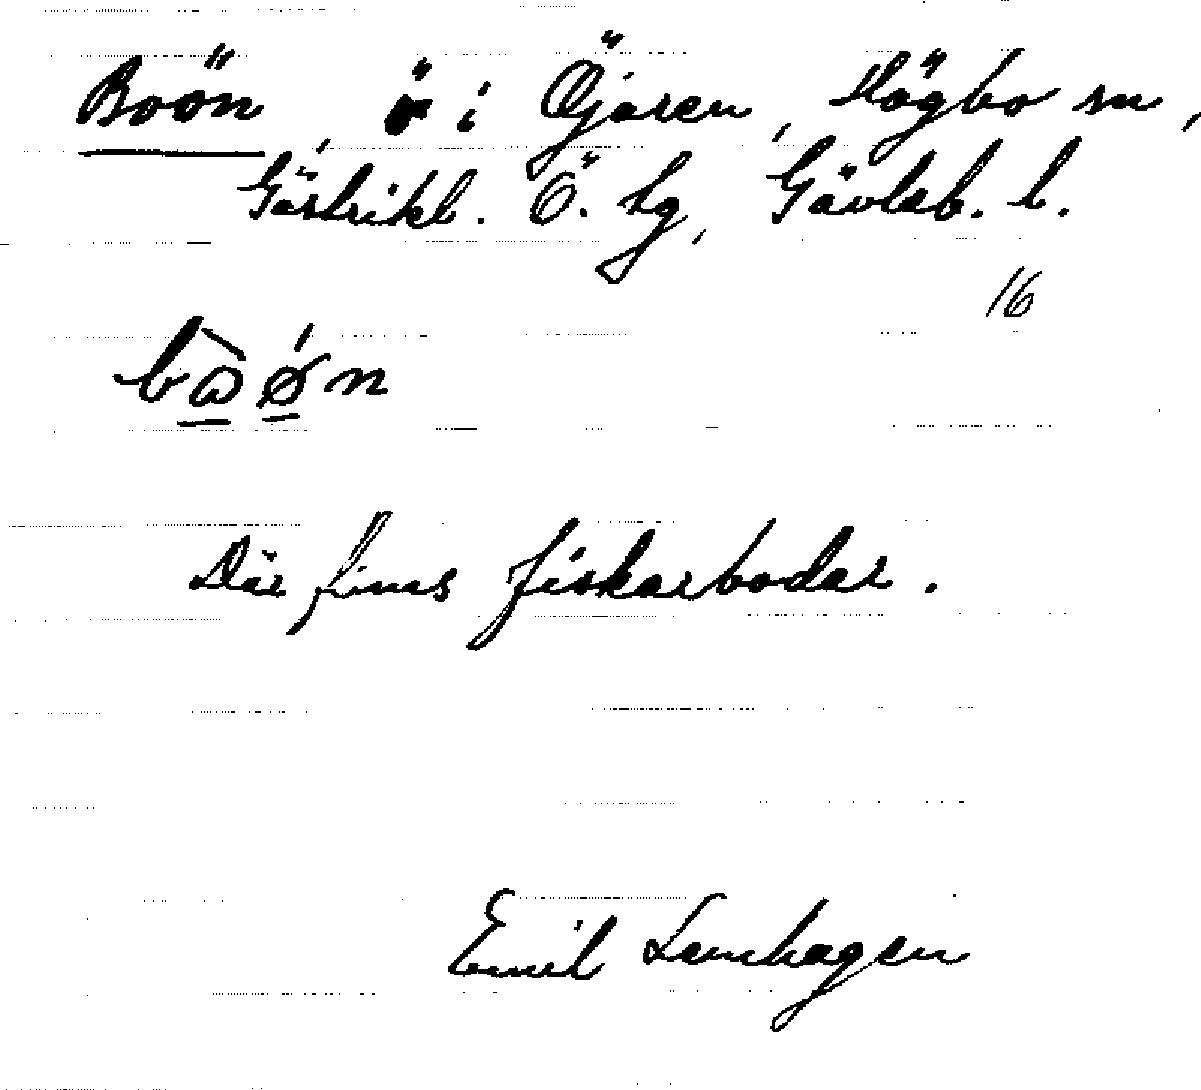 Boön, ö i Öjaren, Högbo sn,
Gästrikl. Ö. tg, Gävleb. l.
16
bωøn
Där fins fiskarbodar.
Emil Lenhagen